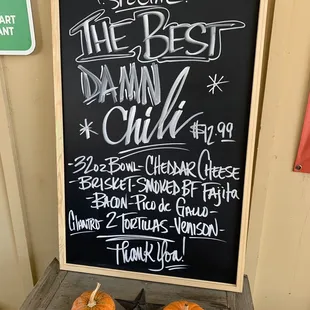 SPECIAL!
THE BEST
DAMN
Chili
$12.99
-32oz BOWL- CHEDDAR CHEESE
-BRISKET-SMOKED BF FAJITA
-BACON-PICO de GALLO-
CILANTRO 2 TORTILLAS-VENISON-
THANK YOU!
ART
ANT